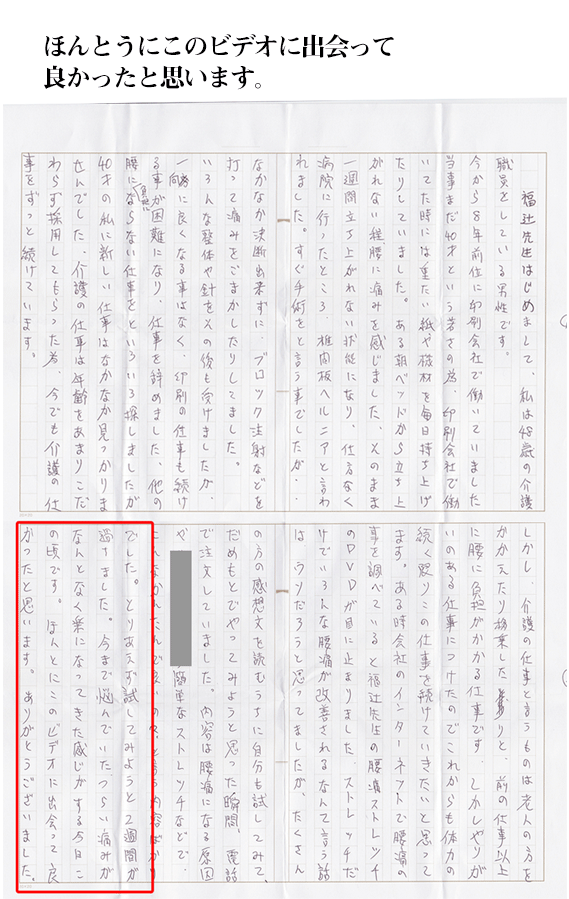 ほんとうにこのビデオに出会って
良かったと思います。
福辻先生はじめまして、私は48歳の介護
職員をしている男性です。
今から8年前位に印刷会社で働いていました
当事まだ40才という若さの為、印刷会社で働
いてた時には重たい紙や機材を毎日持ち上げ
たりしていました。ある朝ベッドから立ち上
がれない程腰に痛みを感じました、そのまま
一週間立ち上がれない状態になり、仕方なく
病院に行ったところ、椎間板ヘルニアと言わ
れました。すぐ手術をと言う事でしたが・・
なかなか決断出来ずに、ブロック注射などを
打って痛みをごまかしたりしてました。
いろんな整体や針をその後も受けましたが、
一向に良くなる事はなく、印刷の仕事も続け
る事が困難になり、仕事を辞めました、他の
腰に負担にならない仕事をといろいろ探しましたが
40才の私に新しい仕事はなかなか見つかりま
せんでした、介護の仕事は年齢をあまりこだ
わらず採用してもらった為、今でも介護の仕
事をずっと続けています。
しかし、介護の仕事と言うものは老人の方を
かかえたり移乗したりと、前の仕事以上
に腰に負担がかかる仕事です、しかしやりが
いのある仕事につけたのでこれからも体力の
続く限りこの仕事を続けていきたいと思って
ます。ある時会社のインターネットで腰痛の
事を調べていると福辻先生の腰痛ストレッチ
のDVDが目に止まりました、ストレッチだ
けでいろんな腰痛が改善されるなんて言う話
はウソだろうと思ってましたが、たくさん
の方の感想文を読むうちに自分も試してみて、
だめもとでやってみようと思った瞬間、電話
で注文していました。内容は腰痛になる原因
や 簡単なストレッチなどで、
こんなかんたんで と言う内容ばかり
でした。とりあえず試してみようと2週間が
過ぎました。今まで悩んでいたつらい痛みが
なんとなく楽になってきた感じがする今日こ
の頃です。ほんとにこのビデオに出会って良
かったと思います。ありがとうございました。